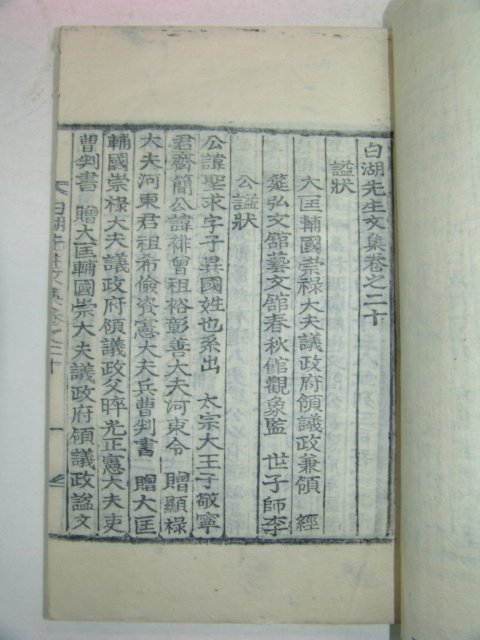 白湖先生文集卷之二十
諡狀
大匡輔國崇祿大夫議政府領議政兼領 經
筵弘文館藝文館春秋館觀象監 世子師李
公諡狀
公諱聖求字子異國姓也系出 太宗大王子敬寧
君齊簡公諱裶曾祖裕彰善大夫河東令 贈顯祿
大夫河東君祖希儉資憲大夫兵曹判書 贈大匡
輔國崇祿大夫議政府領議政父晬光正憲大夫吏
曹判書 贈大匡輔國崇大夫議政府領議政諡文
白湖先生文集卷之二十